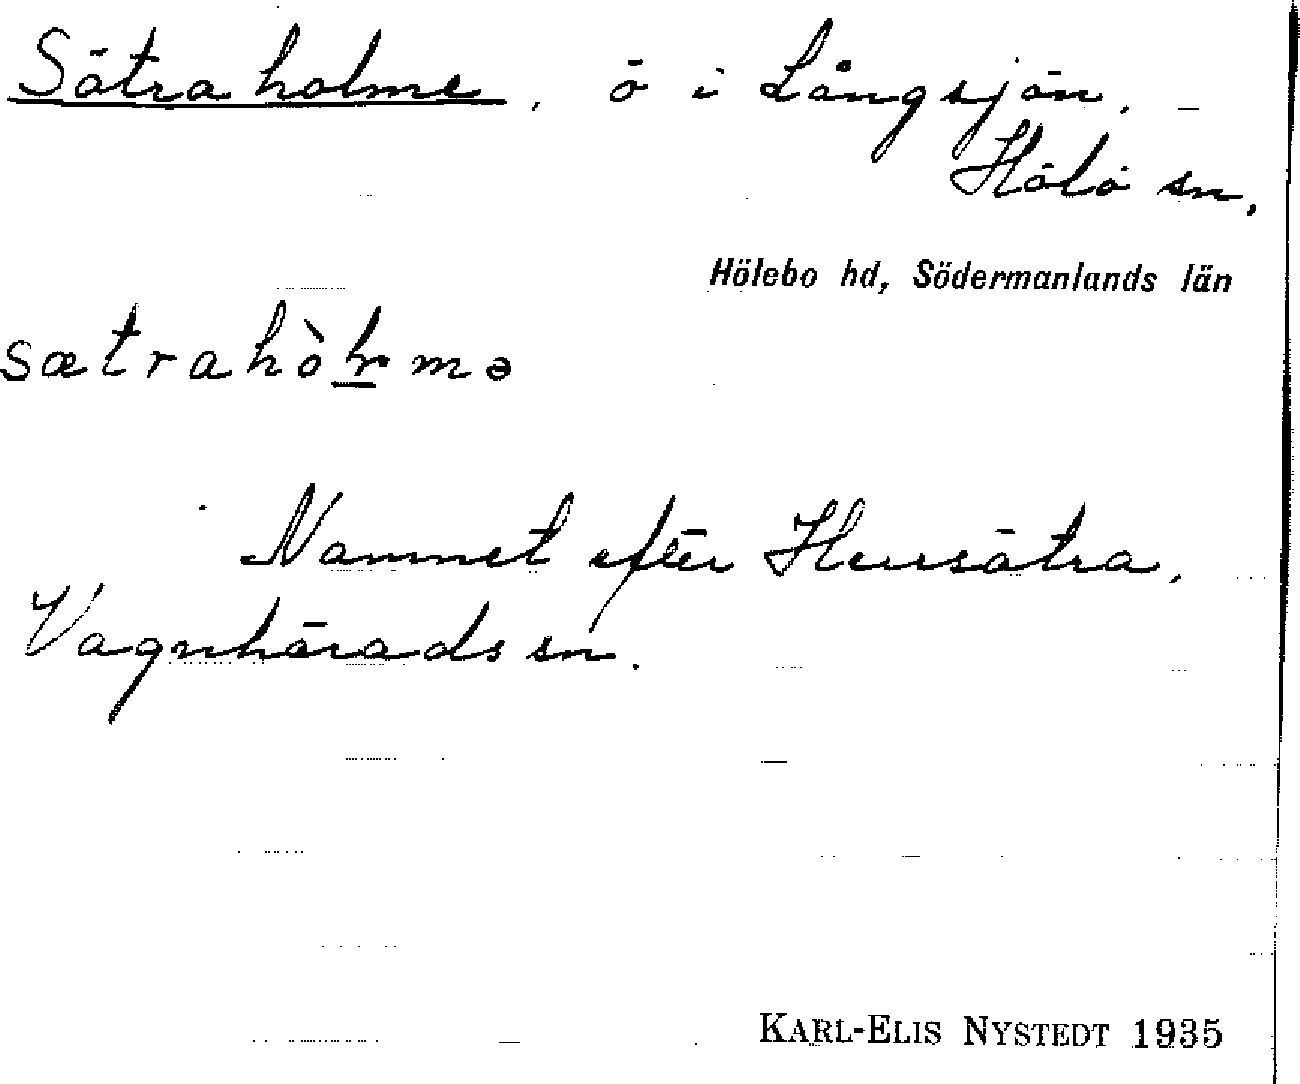 Sätraholme, ö i Långsjön,
Hölö sn,
Hölebo hd, Södermanlands län
Namnet efter Hersätra,
Vagnhärads sn.
KARL-ELIS NYSTEDT 1935